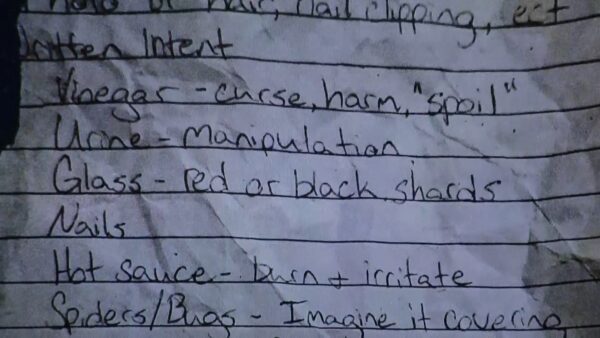 hair, nail clipping, ect
Written Intent
Vinegar - curse, harm, "spoil"
Urine - manipulation
Glass - red or black shards
Nails
Hot sauce - burn + irritate
Spiders/Bugs - Imagine it covering